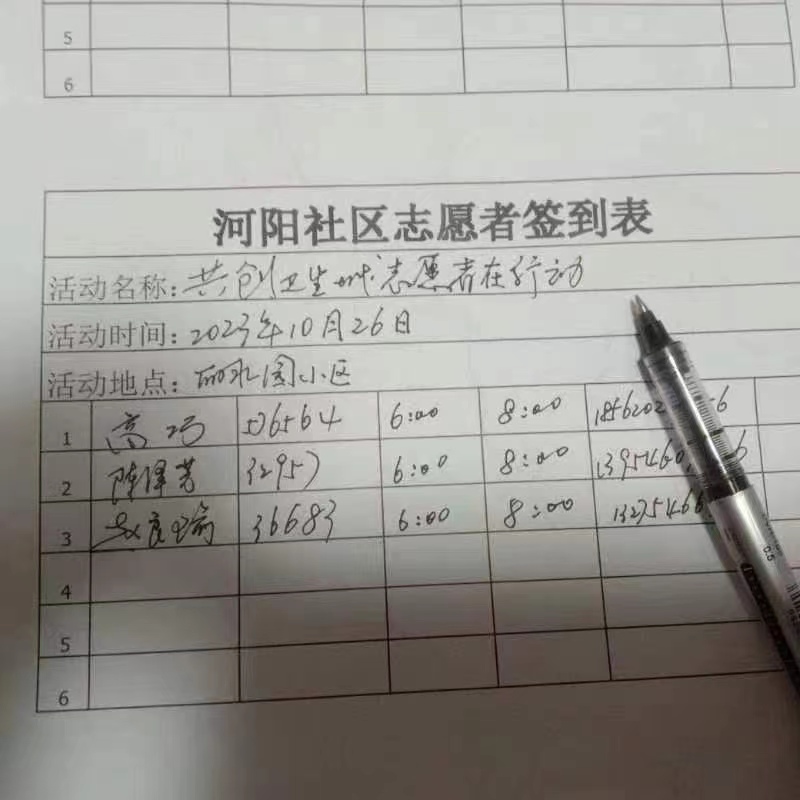 5
6
河阳社区志愿者签到表
活动名称：共创卫生城志愿者在行动
活动时间：2023年10月26日
活动地点：丽水园小区
1 高巧 536564 6:00 8:00 1856202 6
2 陈泽芳 32957 6:00 8:00 1395460 6
3 36683 6:00 8:00 13275466
4
5
6
0.5